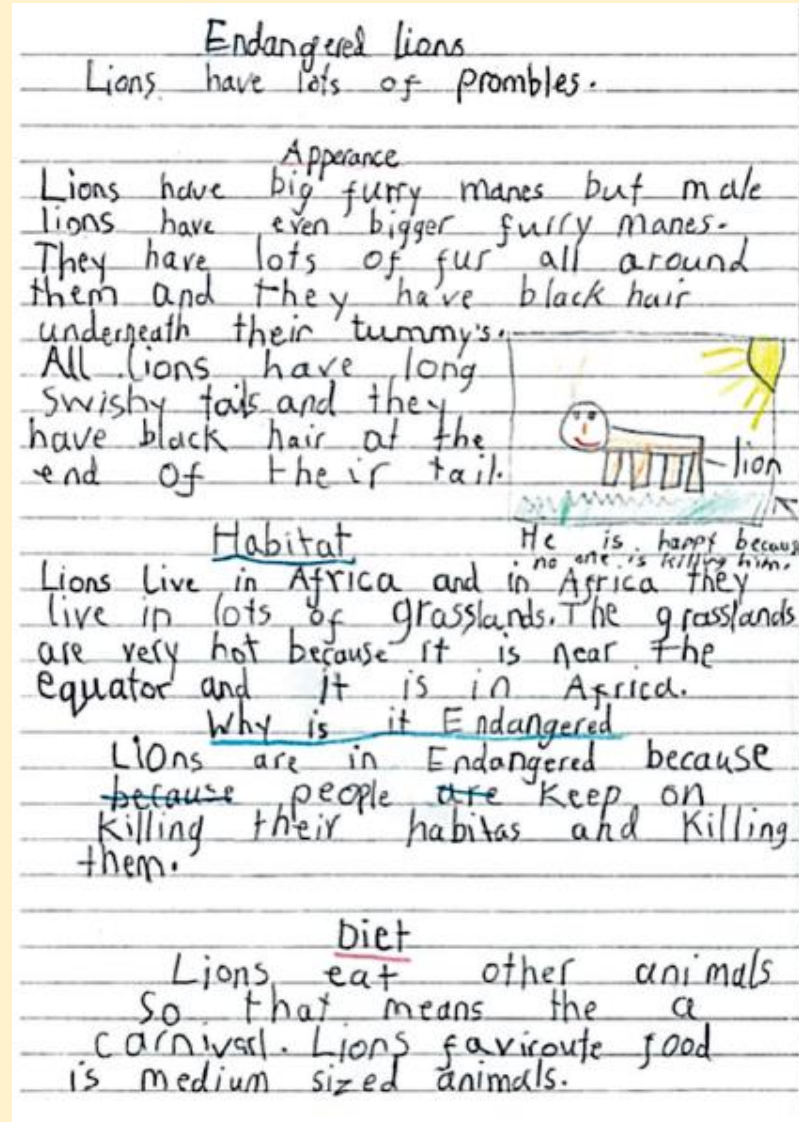 Endangered lions
Lions have lots of prombles.
Apperance
Lions have big furry manes but male
lions have even bigger furry manes.
They have lots of fur all around
them and they have black hair
underneath their tummy's.
All lions have long
swishy tails and they
have black hair at the
end of their tail.
lion
He is happy because
no one is killing him.
Habitat
Lions Live in Africa and in Africa they
live in lots of grasslands. The grasslands
are very hot because it is near the
equator and it is in Africa.
Why is it Endangered
Lions are in Endangered because
because people are Keep on
Killing their habitas and Killing
them.
Diet
Lions eat other animals
So that means the a
carnivarl. Lions faviroute food
is medium sized animals.